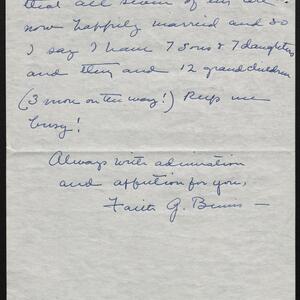 that all seven of us are
now happily married and so
I say I have 7 sons & 7 daughters
and they and 12 grandchildren
(3 more on the way!) keep me
busy!
Always with admiration
and affection for you,
Faith G.